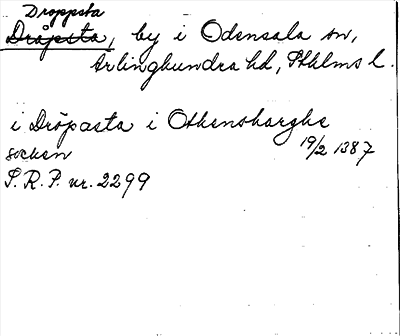 Droppsta
Dråpsta, by i Odensala sn,
Ärlinghundra hd, Sthlms l.
i Dröpasta i Othensharghe
socken 19/2 1387
S. R. P. nr. 2299